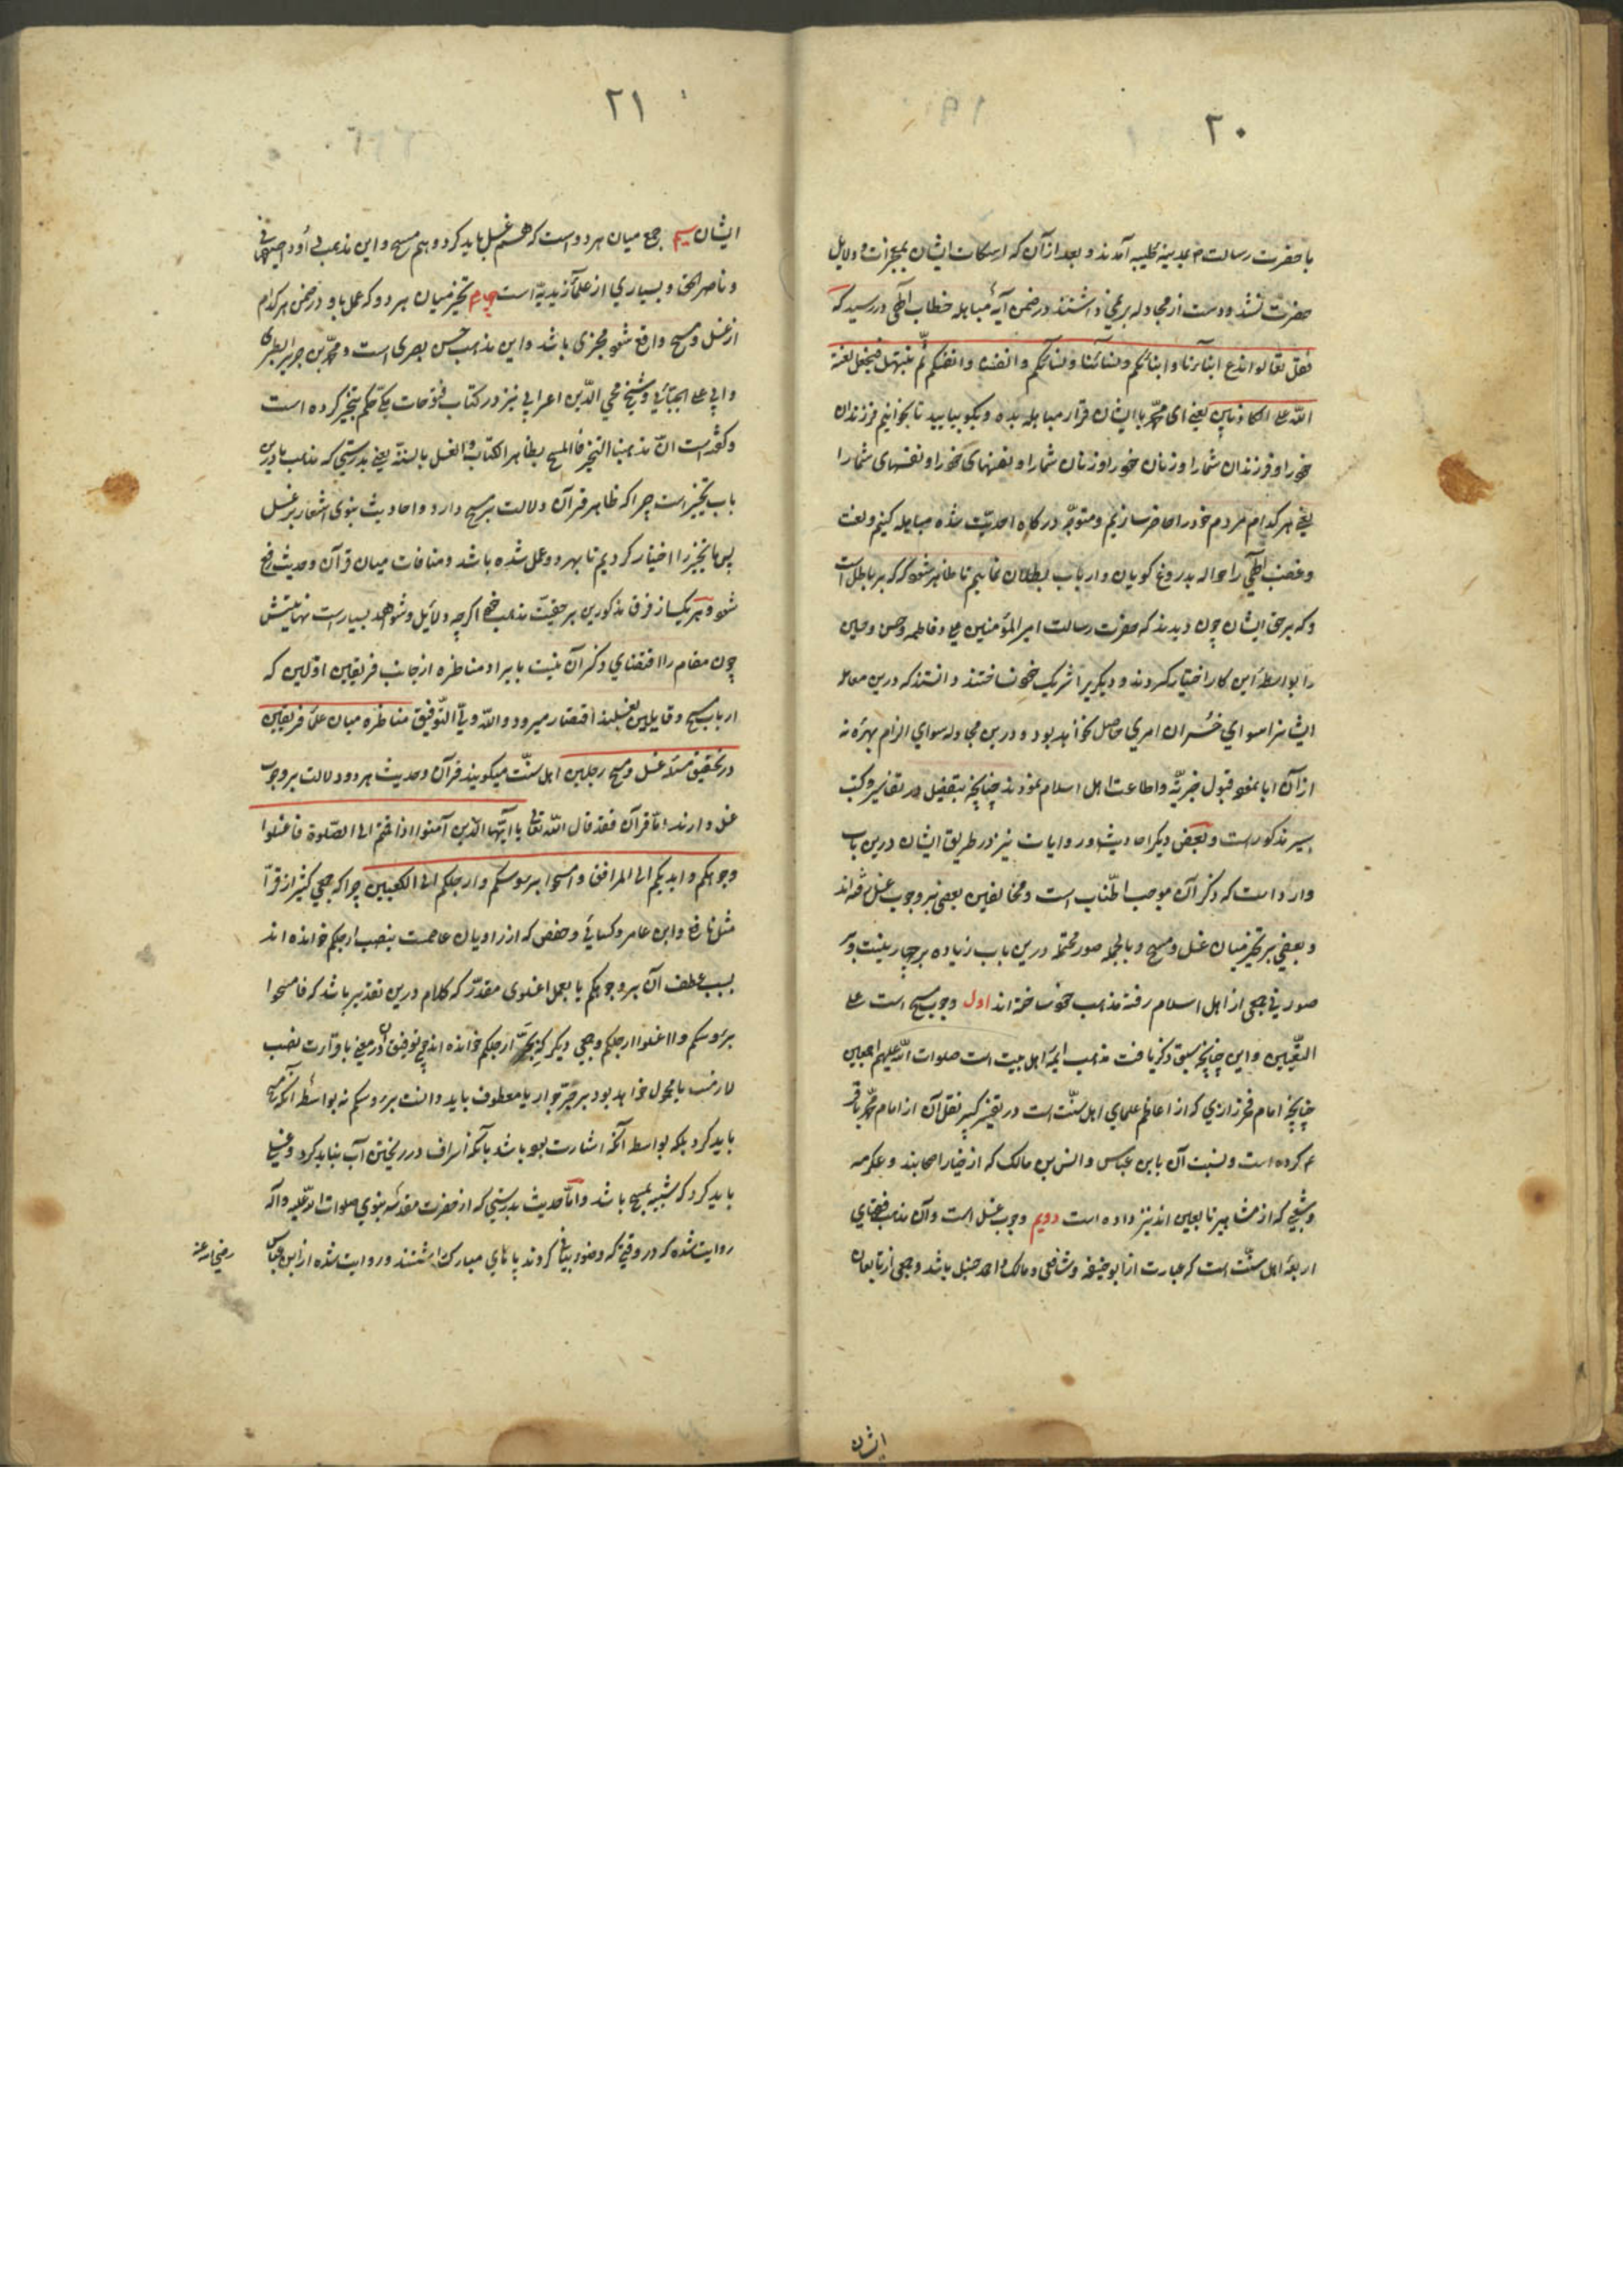 ۲۰
با حضرت رسالت م بمدینه طیبه آمدند و بعد از آن که اسکات ایشان بمعجزات و دلایل
حضرت نشد و دست از مجادله بر نمی داشتند در ضمن آیهٔ مباهله خطاب الهی در رسید که
فقل تعالوا ندع ابنآءنا و ابنائکم و نسائنا و نسائکم و انفسنا و انفسکم ثم نبتهل فنجعل لعنة
الله علی الکاذبین یعنی ای محمد با ایشان قرار مباهله بده و بکو بیایید تا بخوانیم فرزندان
خود را و فرزندان شما را و زنان خود را و زنان شما را و نفسهای خود را و نفسهای شما را
یعنی هر کدام مردم خود را حاضر سازیم و متوجه درکاه احدیت شده مباهله کنیم و لعنت
و غضب الهی را حواله بدروغ کویان و ارباب بطلان نماییم تا ظاهر شود که که بر باطل است
و که بر حق ایشان چون دیدند که حضرت رسالت امیر المؤمنین علی و فاطمه و حسن و حسین
را بواسطهٔ این کار اختیار کردند و دیکری را شریک خود نساختند دانستند که درین معامله
ایشانرا سوای خسران امری حاصل نخواهد بود و درین مجادله سوای الزام بهره نه
از آن ابا نمود قبول جزیه و اطاعت اهل اسلام نمودند چنانچه بتفصیل در تفاسیر و کتب
سیر مذکور است و بعض دیکر احادیث و روایات نیز در طریق ایشان درین باب
وارد است که ذکر آن موجب اطناب است و مخالفین بعضی بر وجوب غسل رفته اند
و بعضی بر تخییر میان غسل و مسح و بالجمله صور محتمله درین باب زیاده بر چهار نیست و
صور فی جمعی از اهل اسلام رفته مذهب خود ساخته اند اول وجوب مسح است علی
التعیین و این چنانچه سبق ذکر یافت مذهب ایمهٔ اهل بیت است صلوات الله علیهم اجمعین
چنانچه امام فخر رازی که از اعاظم علمای اهل سنت است در تفسیر کبیر نقل آن از امام محمد باقر
ع کرده است و نسبت آن بابن عباس و انس بن مالک که از خیار صحابند و عکرمه
و شعبی که از مشاهیر تابعین اند نیز داده است دویم وجوب غسل است و آن مذهب فقهای
اربعهٔ اهل سنت است که عبارت از ابو حنیفه و شافعی و مالک و احمد حنبل باشد و جمعی از تابعان
ایشان
۲۱
ایشان سیم جمع میان هر دو است که هم غسل باید کرد و هم مسح و این مذهب داود اصفهانی
و ناصر الحق و بسیاری از علمآء زیدیه است چهارم تخییر میان هر دو که عمل باو در ضمن هر کدام
از غسل و مسح واقع شود مجزی باشد و این مذهب حسن بصری است و محمد بن جریر الطبری
و ابی علی الجبائی و شیخ محی الدین اعرابی نیز در کتاب فتوحات مکی حکم بتخییر کرده است
و کفته است ان مذهبنا التخییر فالمسح بظاهر الکتاب و الغسل بالسنة یعنی بدرستی که مذهب ما درین
باب تخییر است چرا که ظاهر قرآن دلالت بر مسح دارد و احادیث نبوی اشعار بر غسل
پس ما تخییر را اختیار کردیم تا بهر دو عمل شده باشد و منافات میان قرآن و حدیث رفع
شود و هر یک از فرق مذکورین بر حقیت مذهب خود اکرچه دلایل و شواهد بسیار است نهایتش
چون مقام را اقتضای ذکر آن نیست بایراد مناظره از جانب فریقین اولین که
ارباب مسح و قایلین بغسلند اقتصار میرود و الله ولی التوفیق مناظره میان علمآء فریقین
در تحقیق مسئلهٔ غسل و مسح رجلین اهل سنت میکویند قرآن و حدیث هر دو دلالت بر وجوب
غسل دارند اما قرآن فقد قال الله تعالی یا ایها الذین آمنوا اذا قمتم الی الصلوة فاغسلوا
وجوهکم و ایدیکم الی المرافق و امسحوا برءوسکم و ارجلکم الی الکعبین چرا که جمعی کثیر از قرآء
مثل نافع و ابن عامر و کسائی و حفص که از راویان عاصمست بنصب ارجلکم خوانده اند
بسبب عطف آن بر وجوهکم یا بعمل اغسلوی مقدر که کلام درین تقدیر باشد که فامسحوا
برءوسکم و اغسلوا ارجلکم و جمعی دیکر که بجر ارجلکم خوانده اند پی توفیق آن در معنی با قرآءت نصب
لازمست یا محمول خواهد بود بر جر جوار یا معطوف باید دانست برءوسکم نه بواسطهٔ آنکه مسح
باید کرد بلکه بواسطه آنکه اشارت بوده باشد بآنکه اسراف در ریختن آب نباید کرد و غسلی
باید کرد که شبیه بمسح باشد و اما حدیث بدرستی که از حضرت مقدسهٔ نبوی صلوات الله علیه و آله
روایت شده که در وقتی که وضوء بیانی کردند پاهای مبارک شستند و روایت شده از ابن عباس
رضی الله عنه